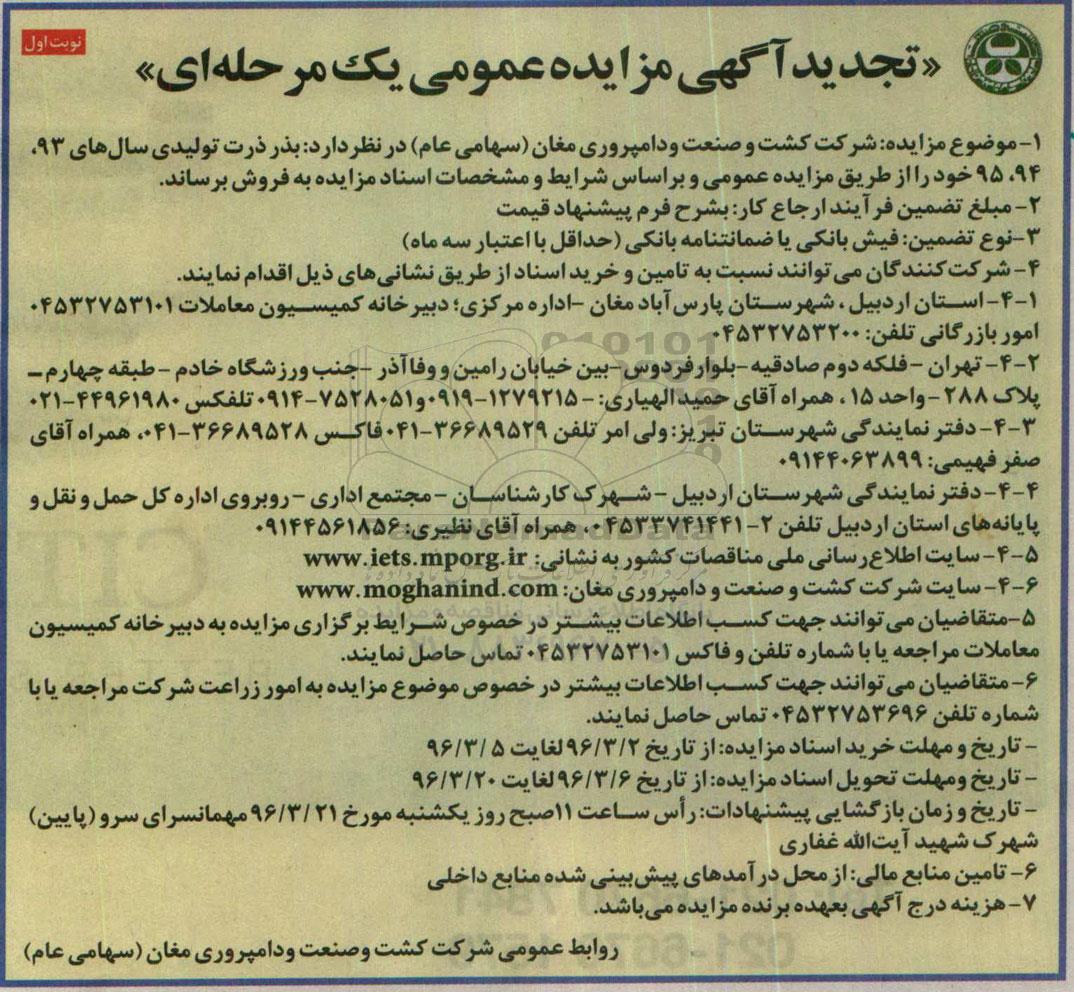 نوبت اول
«تجدید آگهی مزایده عمومی یک مرحله‌ای»
۱-موضوع مزایده: شرکت کشت و صنعت ودامپروری مغان (سهامی عام) در نظر دارد: بذر ذرت تولیدی سال‌های ۹۳،
۹۴، ۹۵ خود را از طریق مزایده عمومی و براساس شرایط و مشخصات اسناد مزایده به فروش برساند.
۲- مبلغ تضمین فرآیند ارجاع کار: بشرح فرم پیشنهاد قیمت
۳-نوع تضمین: فیش بانکی یا ضمانتنامه بانکی (حداقل با اعتبار سه ماه)
۴- شرکت‌کنندگان می‌توانند نسبت به تامین و خرید اسناد از طریق نشانی‌های ذیل اقدام نمایند.
۴-۱- استان اردبیل ، شهرستان پارس‌آباد مغان -اداره مرکزی؛ دبیرخانه کمیسیون معاملات ۰۴۵۳۲۷۵۳۱۰۱
امور بازرگانی تلفن: ۰۴۵۳۲۷۵۳۲۰۰
۴-۲- تهران - فلکه دوم صادقیه -بلوار فردوس-بین خیابان رامین و وفاآذر -جنب ورزشگاه خادم - طبقه چهارم –
پلاک ۲۸۸ -واحد ۱۵ ، همراه آقای حمید الهیاری: - ۱۲۷۹۲۱۵-۰۹۱۹و۷۵۲۸۰۵۱-۰۹۱۴ تلفکس ۴۴۹۶۱۹۸۰-۰۲۱
۴-۳- دفتر نمایندگی شهرستان تبریز: ولی امر تلفن ۳۶۶۸۹۵۲۹-۰۴۱فاکس ۳۶۶۸۹۵۲۸-۰۴۱، همراه آقای
صفر فهیمی: ۰۹۱۴۴۰۶۳۸۹۹
۴-۴- دفتر نمایندگی شهرستان اردبیل - شهرک کارشناسان -مجتمع اداری - روبروی اداره کل حمل و نقل و
پایانه‌های استان اردبیل تلفن ۲-۰۴۵۳۳۷۴۱۴۴۱، همراه آقای نظیری: ۰۹۱۴۴۵۶۱۸۵۶
۴-۵- سایت اطلاع‌رسانی ملی مناقصات کشور به نشانی: www.iets.mporg.ir
۴-۶- سایت شرکت کشت و صنعت و دامپروری مغان: www.moghanind.com
۵-متقاضیان می‌توانند جهت کسب اطلاعات بیشتر در خصوص شرایط برگزاری مزایده به دبیرخانه کمیسیون
معاملات مراجعه یا با شماره تلفن و فاکس ۰۴۵۳۲۷۵۳۱۰۱ تماس حاصل نمایند.
۶-متقاضیان می‌توانند جهت کسب اطلاعات بیشتر در خصوص موضوع مزایده به امور زراعت شرکت مراجعه یا با
شماره تلفن ۰۴۵۳۲۷۵۳۶۹۶ تماس حاصل نمایند.
- تاریخ و مهلت خرید اسناد مزایده: از تاریخ ۹۶/۳/۲ لغایت ۹۶/۳/۵
- تاریخ ومهلت تحویل اسناد مزایده: از تاریخ ۹۶/۳/۶ لغایت ۹۶/۳/۲۰
- تاریخ و زمان بازگشایی پیشنهادات: رأس ساعت ۱۱صبح روز یکشنبه مورخ ۹۶/۳/۲۱ مهمانسرای سرو (پایین)
شهرک شهید آیت‌الله غفاری
۶- تامین منابع مالی: از محل درآمدهای پیش‌بینی شده منابع داخلی
۷-هزینه درج آگهی بعهده برنده مزایده می‌باشد.
روابط عمومی شرکت کشت وصنعت ودامپروری مغان (سهامی عام)